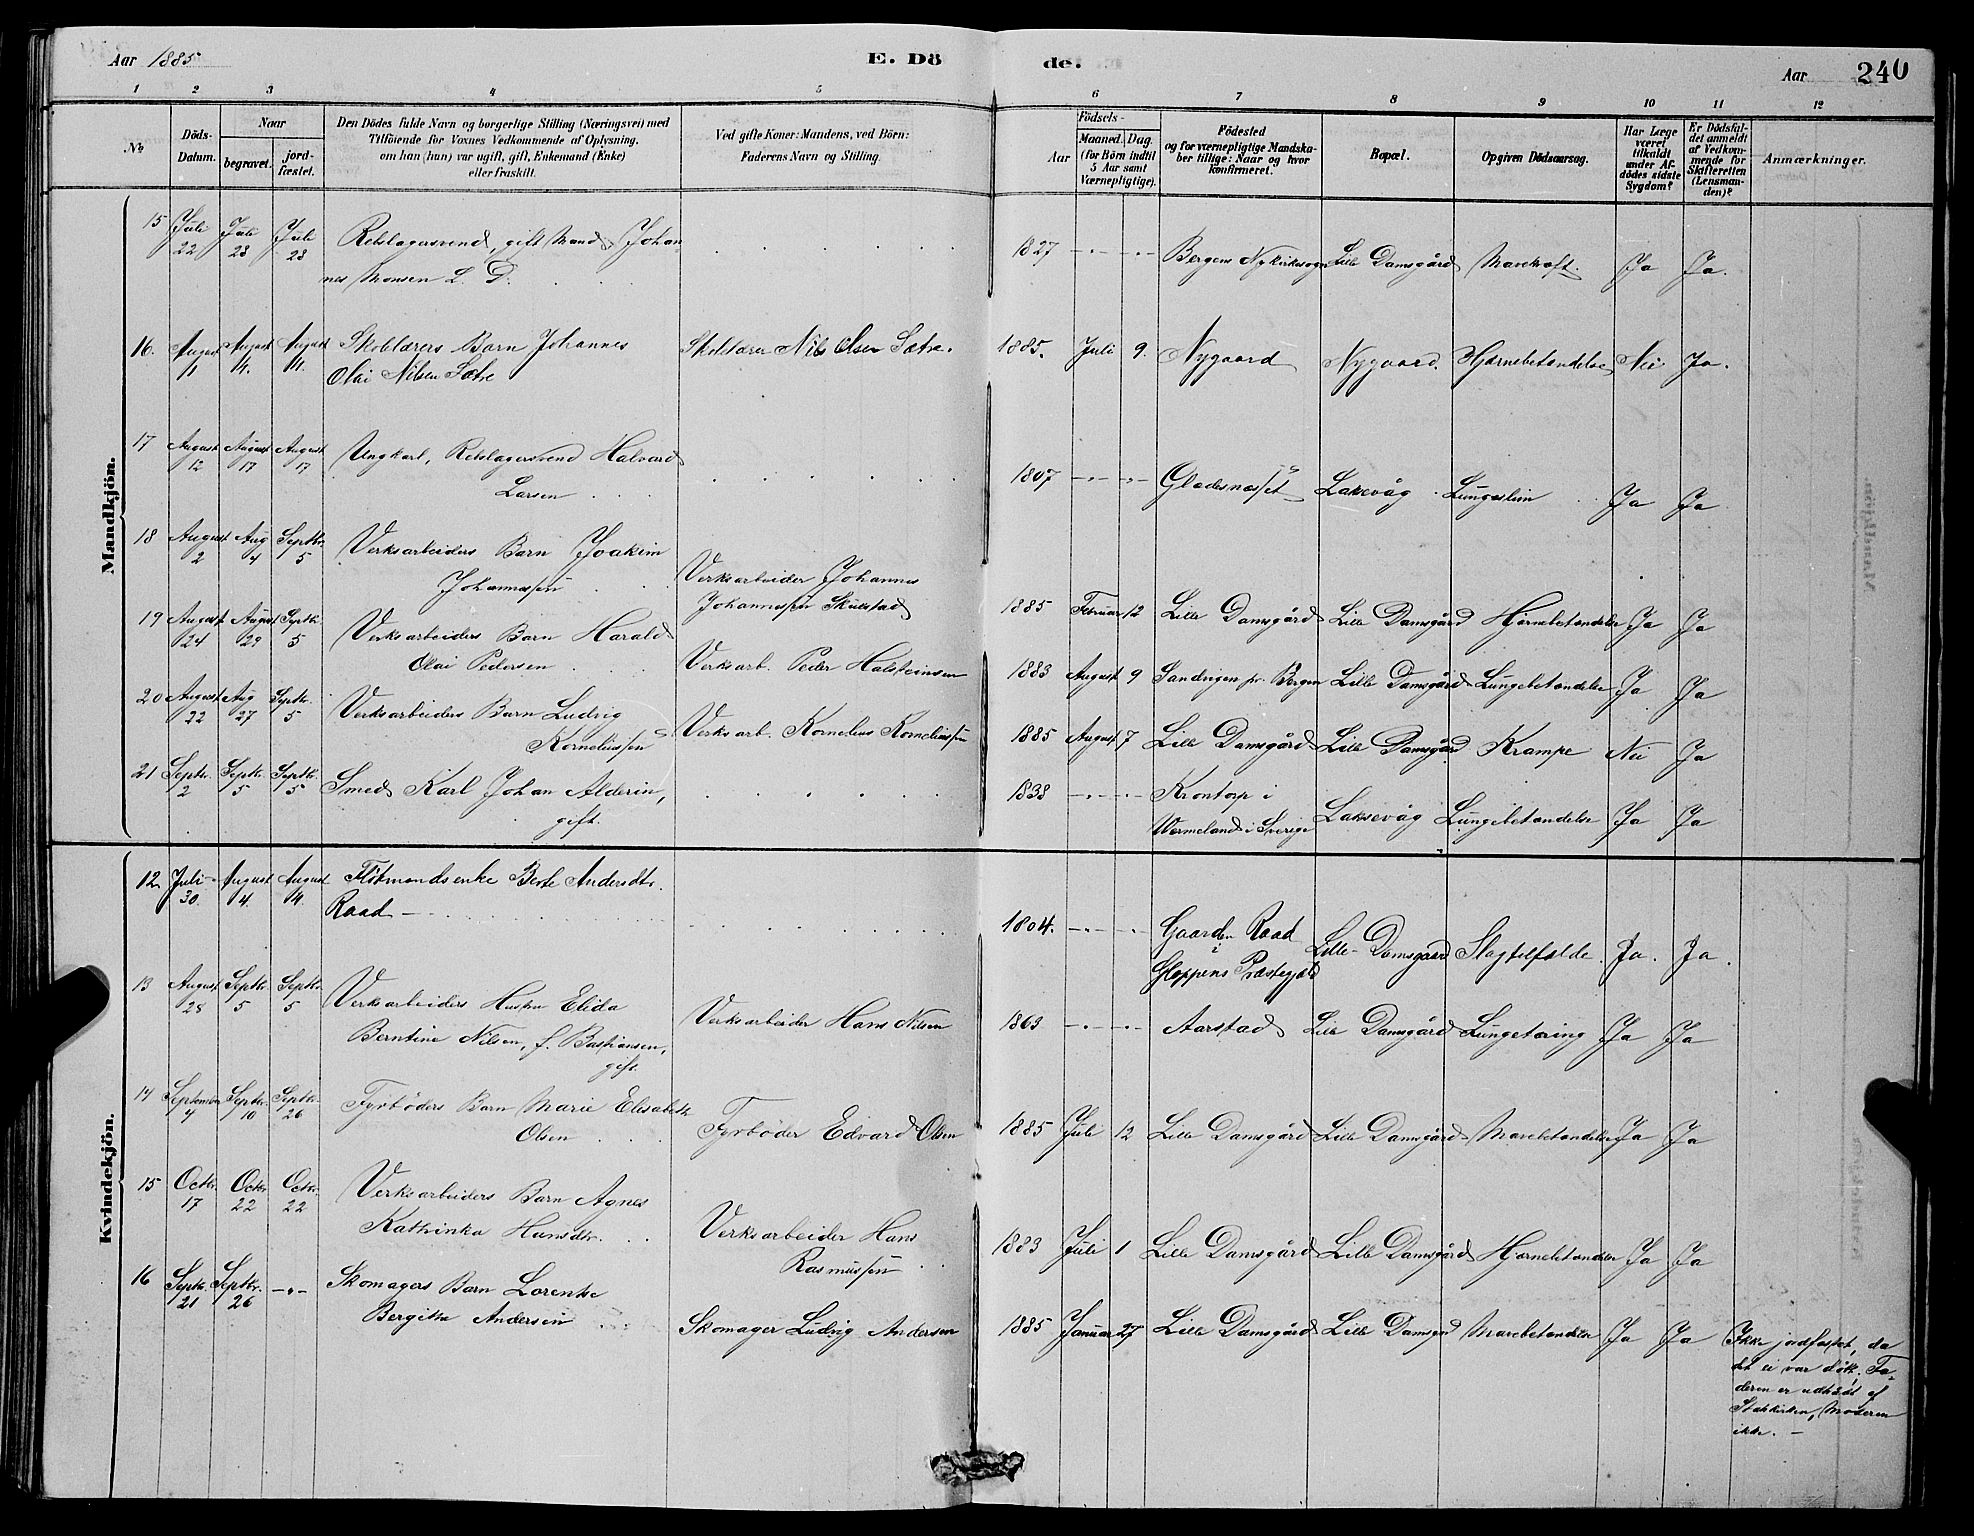 Aar 1885
E. Dö
de.
Aar
240
1 2 3 4 5 6 7 8 9 10 11 12
No
Döds-
Datum.
Naar
begravet.
jord-
fæstet.
Den Dödes fulde Navn og borgerlige Stilling (Næringsvei) med
Tilföiende for Voxnes Vedkommende af Oplysning,
om han (hun) var ugift, gift, Enkemand (Enke)
eller fraskilt.
Ved gifte Koner: Mandens, ved Börn:
Faderens Navn og Stilling.
Födsels-
Aar
Maaned. Dag.
(for Börn indtil
5 Aar samt
Værnepligtige).
Födested
og for værnepligtige Mandska-
ber tillige: Naar og hvor
konfirmeret.
Bopæl.
Opgiven Dödsaarsag.
Har Læge
været
tilkaldt
under Af-
dödes sidste
Sygdom?
Er Dödsfal-
det anmeldt
af Vedkom-
mende for
Skifteretten
(Lensman-
den)?
Anmærkninger.
Mandkjön.
15 Juli 22 Juli 28 Juli 28 Rebslagersvend, gift Mand Johan-
nes Monsen L. D.
1827 Bergens Nykirkesogn Lille Damsgård Mavekræft. Ja Ja.
16. August 1 August 4. August 4. Skolelærers Barn Johannes
Olai Nilsen Sætre
Skolelærer Nils Olsen Sætre.
1885. Juli 9. Nygaard Nygaard. Hjernebetændelse Nei Ja.
17 August 12 August 17 August 17 Ungkarl, Rebslagersvend Halvard
Larsen
1807 Gladesnæsset Laksevåg Lungeslim Ja Ja
18 August 2 Aug 4 Septbr. 5 Verksarbeiders Barn Joakim
Johannessen
Verksarbeider Johannes
Johannessen Skuestad
1885 Februar 12 Lille Damsgård Lille Damsgård Hjernebetændelse Ja Ja
19 August 24 August 29 Septbr. 5 Verksarbeiders Barn Harald
Olai Pedersen
Verksarb. Peder Halsteinsen
1883 August 9 Sandvigen pr. Bergen Lille Damsgård Lungebetændelse Ja Ja
20 August 22 Aug 27 Septbr. 5 Verksarbeiders Barn Ludvig
Korneliussen
Verksarb. Kornelius Korneliussen
1885 August 7 Lille Damsgård Lille Damsgård Krampe Nei Ja
21 Septbr. 2 Septbr. 5 Septbr. 5 Smed Karl Johan Alderin,
gift.
1838 Krontorp i
Wermeland i Sverige
Laksevåg Lungebetændelse Ja Ja
Kvindekjön.
12. Juli 30. August 4. August 4. Fløtmandsenke Berte Andersdtr.
Raad
1804. Gaarden Raad
i
Gloppens Præstegjeld
Lille-Damsgaard Slagtilfælde. Ja. Ja.
13 August 28 Septbr. 5 Septbr. 5 Verksarbeiders Hustru Elida
Berntine Nilsen, f. Bastiansen,
gift.
Verksarbeider Hans Nilsen
1863 Aarstad Lille Damsgård Lungetæring Ja Ja
14 September 4 Septbr. 10 Septbr. 26 Fyrbøders Barn Marie Elisabeth
Olsen
Fyrbøder Edvard Olsen
1885 Juli 12 Lille Damsgård Lille Damsgård Mavebetændelse Ja Ja
15 Octbr. 17 Octbr. 22 Octbr. 22 Verksarbeiders Barn Agnes
Kathrinka Hansdtr.
Verksarbeider Hans
Rasmussen
1883 Juli 1 Lille Damsgård Lille Damsgård Hjernebetændelse Ja Ja
16 Septbr. 21 Septbr. 26 Skomagers Barn Lorentse
Bergitte Andersen
Skomager Ludvig Andersen
1885 Januar 27 Lille Damsgård Lille Damsgrd Mavebetændelse Ja Ja
Ikke jordfæstet, da
det ei var døbt. Fa-
deren er udtrådt af
Statskirken, Moderen
ikke. —